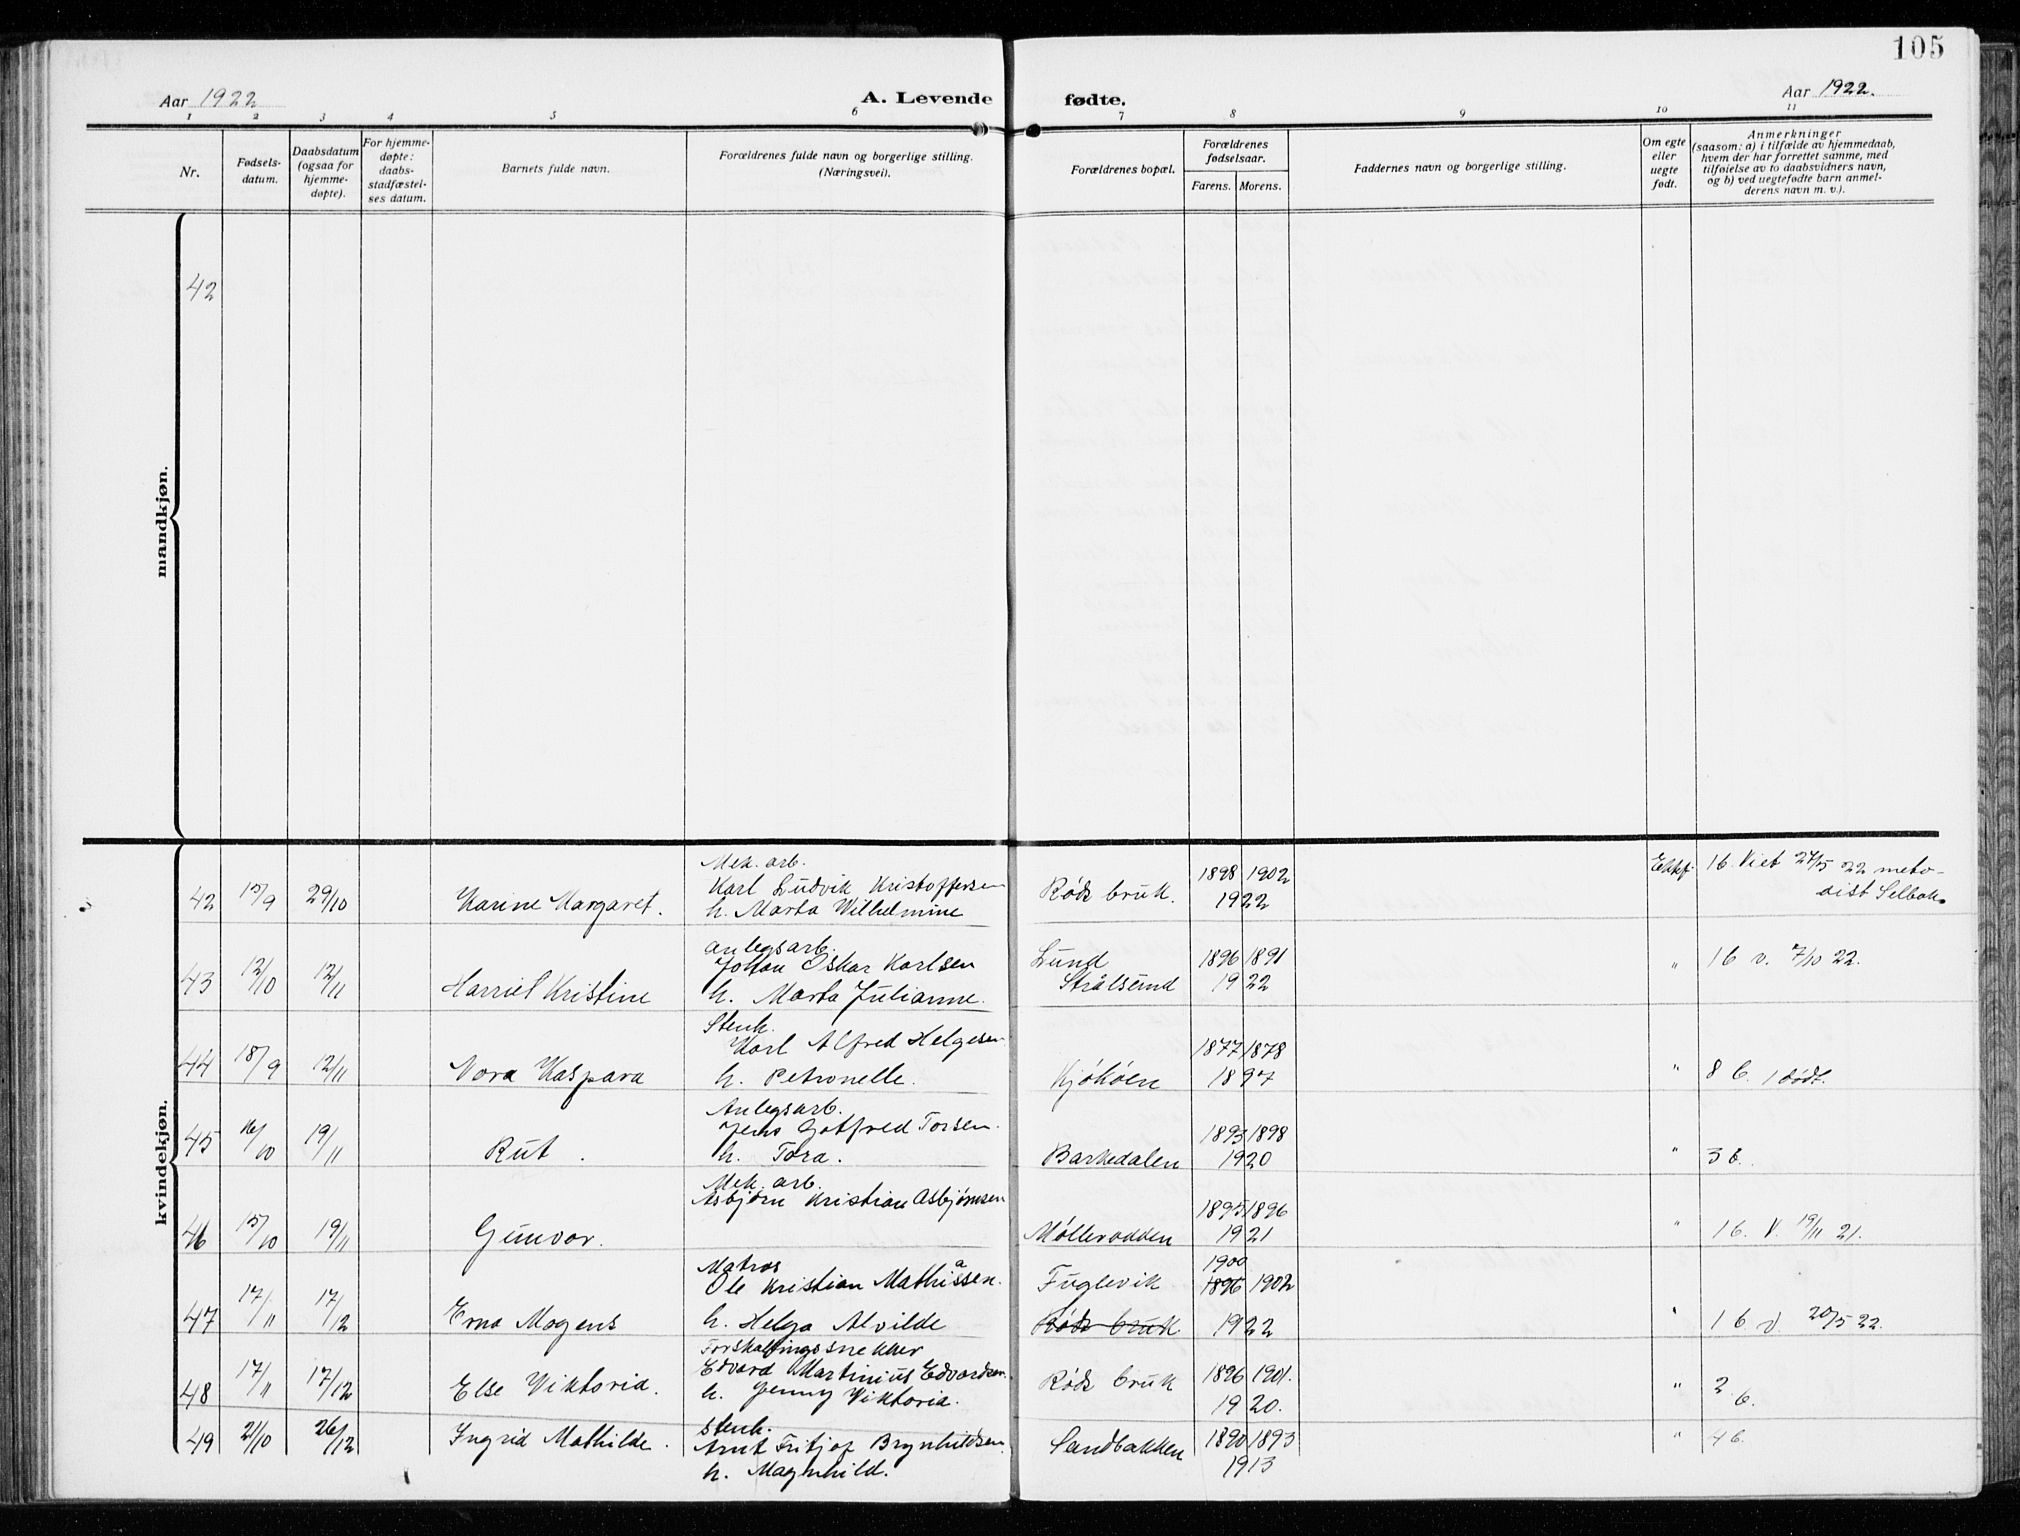 105
Aar 1922
A. Levende fødte.
Aar 1922.
1 2 3 4 5 6 7 8 9 10 11
Nr.
Fødsels-
datum.
Daabsdatum
(ogsaa for
hjemme-
døpte).
For hjemme-
døpte:
daabs-
stadfæstel-
ses datum.
Barnets fulde navn.
Forældrenes fulde navn og borgerlige stilling.
(Næringsvei).
Forældrenes bopæl.
Forældrenes
fødselsaar.
Farens. Morens.
Faddernes navn og borgerlige stilling.
Om egte
eller
uegte
født.
Anmerkninger
(saasom: a) i tilfælde av hjemmedaab,
hvem der har forrettet samme, med
tilføielse av to daabsvidners navn,
og b) ved uegtefødte barn anmel-
derens navn m. v.).
mandkjøn.
42
kvindekjøn.
Mek. arb.
42 15/9 29/10 Karine Margaret. Karl Ludvik Kristoffersen Røds bruk. 1898 1902 Ektf. 16. Viet 27/5 22 meto-
h. Marta Wilhelmine 1922 dist Selbak.
Anlegsarb.
Johan Oskar Karlsen Lund 1896 1891 " 16 v. 7/10 22.
43 12/10 12/11 Harriet Kristine h. Marta Julianne. Strålsund 1922
Stenh.
Karl Alfred Helgesen 1877 1878
44 18/9 12/11 Nora Kaspara h. Petronelle. Kjøkøen 1897 " 8 b. 1 dødt.
Anlegsarb.
45 16/10 19/11 Jens Gotfred Torsen. 1893 1898
Rut. h. Tora. Barkedalen 1920 " 3 b.
Mek. arb.
Asbjørn Kristian Asbjørnsen 1895 1896
46 15/10 19/11 Gunvor. Møllerodden 1921 " 16. V. 19/11 21.
Matros 1900
Ole Kristian Mathisasen. Fuglevik 1896 1902
47 17/11 17/12 Erna Mogens h. Helga Alvilde Røds bruk 1922 " 1 b v. 20/5 22.
Forskallingssnekker
Edvard Martinius Edvardsen. Røds bruk 1896 1901.
48 17/11 17/12 Else Viktoria. h. Jenny Viktoria. 1920. " 2 b.
Stenh.
49 21/10 26/12 Ingrid Mathilde. Arnt Fritjof Brynhildsen. Sandbakken 1890 1893 " 4 b.
h. Magnhild. 1913